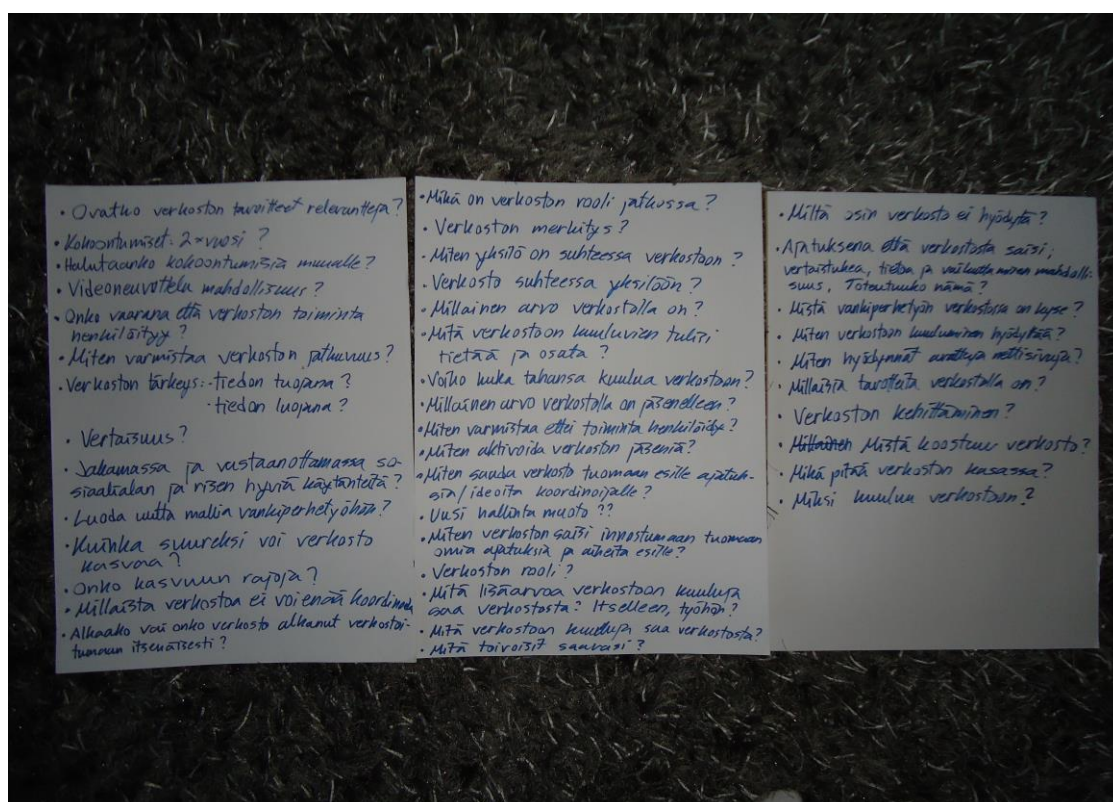 · Ovatko verkoston tavoitteet relevantteja?
· Kokoontumiset: 2×vuosi ?
· Halutaanko kokoontumisia muualle?
· Videoneuvottelu mahdollisuus?
· Onko vaarana että verkoston toiminta
henkilöityy?
· Miten varmistaa verkoston jatkuvuus?
· Verkoston tärkeys: · tiedon tuojana?
· tiedon luojana?
· Vertaisuus?
· Jakamassa ja vastaanottamassa so-
siaalialan ja risen hyviä käytänteitä?
· Luoda uutta mallia vankiperhetyöhön?
· Kuinka suureksi voi verkosto
kasvaa?
· Onko kasvuun rajoja?
· Millaista verkostoa ei voi enää koordinoida
· Alkaako vai onko verkosto alkanut verkostoi-
tumaan itsenäisesti?
· Mikä on verkoston rooli jatkossa?
· Verkoston merkitys?
· Miten yksilö on suhteessa verkostoon?
· Verkosto suhteessa yksilöön?
· Millainen arvo verkostolla on?
· Mitä verkostoon kuuluvien tulisi
tietää ja osata?
· Voiko kuka tahansa kuulua verkostoon?
· Millainen arvo verkostolla on jäsenelleen?
· Miten varmistaa ettei toiminta henkilöidy?
· Miten aktivoida verkoston jäseniä?
· Miten saada verkosto tuomaan esille ajatuk-
sia/ideoita koordinoijalle?
· Uusi hallinta muoto ??
· Miten verkoston saisi innostumaan tuomaan
omia ajatuksia ja aiheita esille?
· Verkoston rooli?
· Mitä lisäarvoa verkostoon kuuluja
saa verkostosta? Itselleen, työhön?
· Mitä verkostoon kuuluja saa verkostosta?
· Mitä toivoisit saavasi?
· Miltä osin verkosto ei hyödytä?
· Ajatuksena että verkostosta saisi;
vertaistukea, tietoa ja vaikuttaminen mahdolli-
suus, Toteutuuko nämä?
· Mistä vankiperhetyön verkostossa on kyse?
· Miten verkostoon kuuluminen hyödyttää?
· Miten hyödynnät nettisivuja?
· Millaisia tavoitteita verkostolla on?
· Verkoston kehittäminen?
· Millainen Mistä koostuu verkosto?
· Mikä pitää verkoston kasassa?
· Miksi kuulua verkostoon?